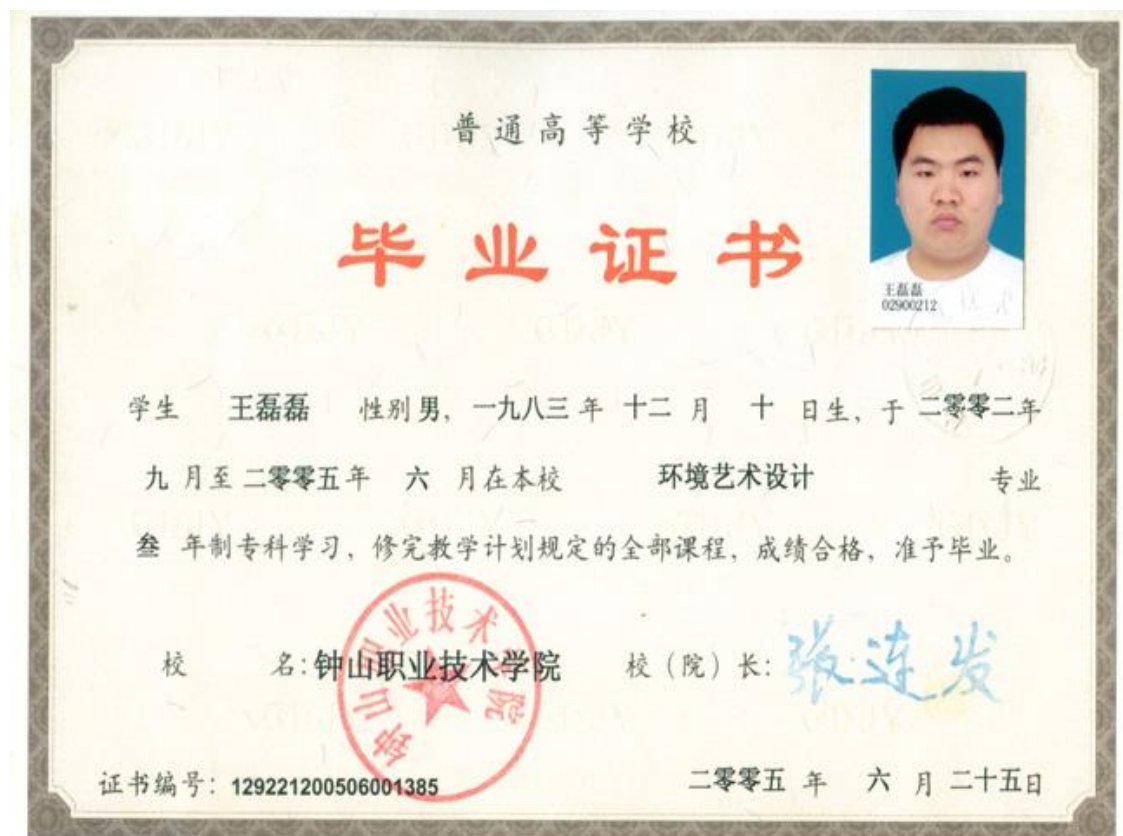 普通高等学校
毕业证书
王磊磊
02900212
学生 王磊磊 性别 男，一九八三 年 十二 月 十 日生，于 二零零二年
九 月至 二零零五 年 六 月在本校 环境艺术设计 专业
叁 年制专科学习，修完教学计划规定的全部课程，成绩合格，准予毕业。
钟山职业技术学院
校 名：钟山职业技术学院 校（院）长：张连发
证书编号：129221200506001385 二零零五 年 六 月 二十五日